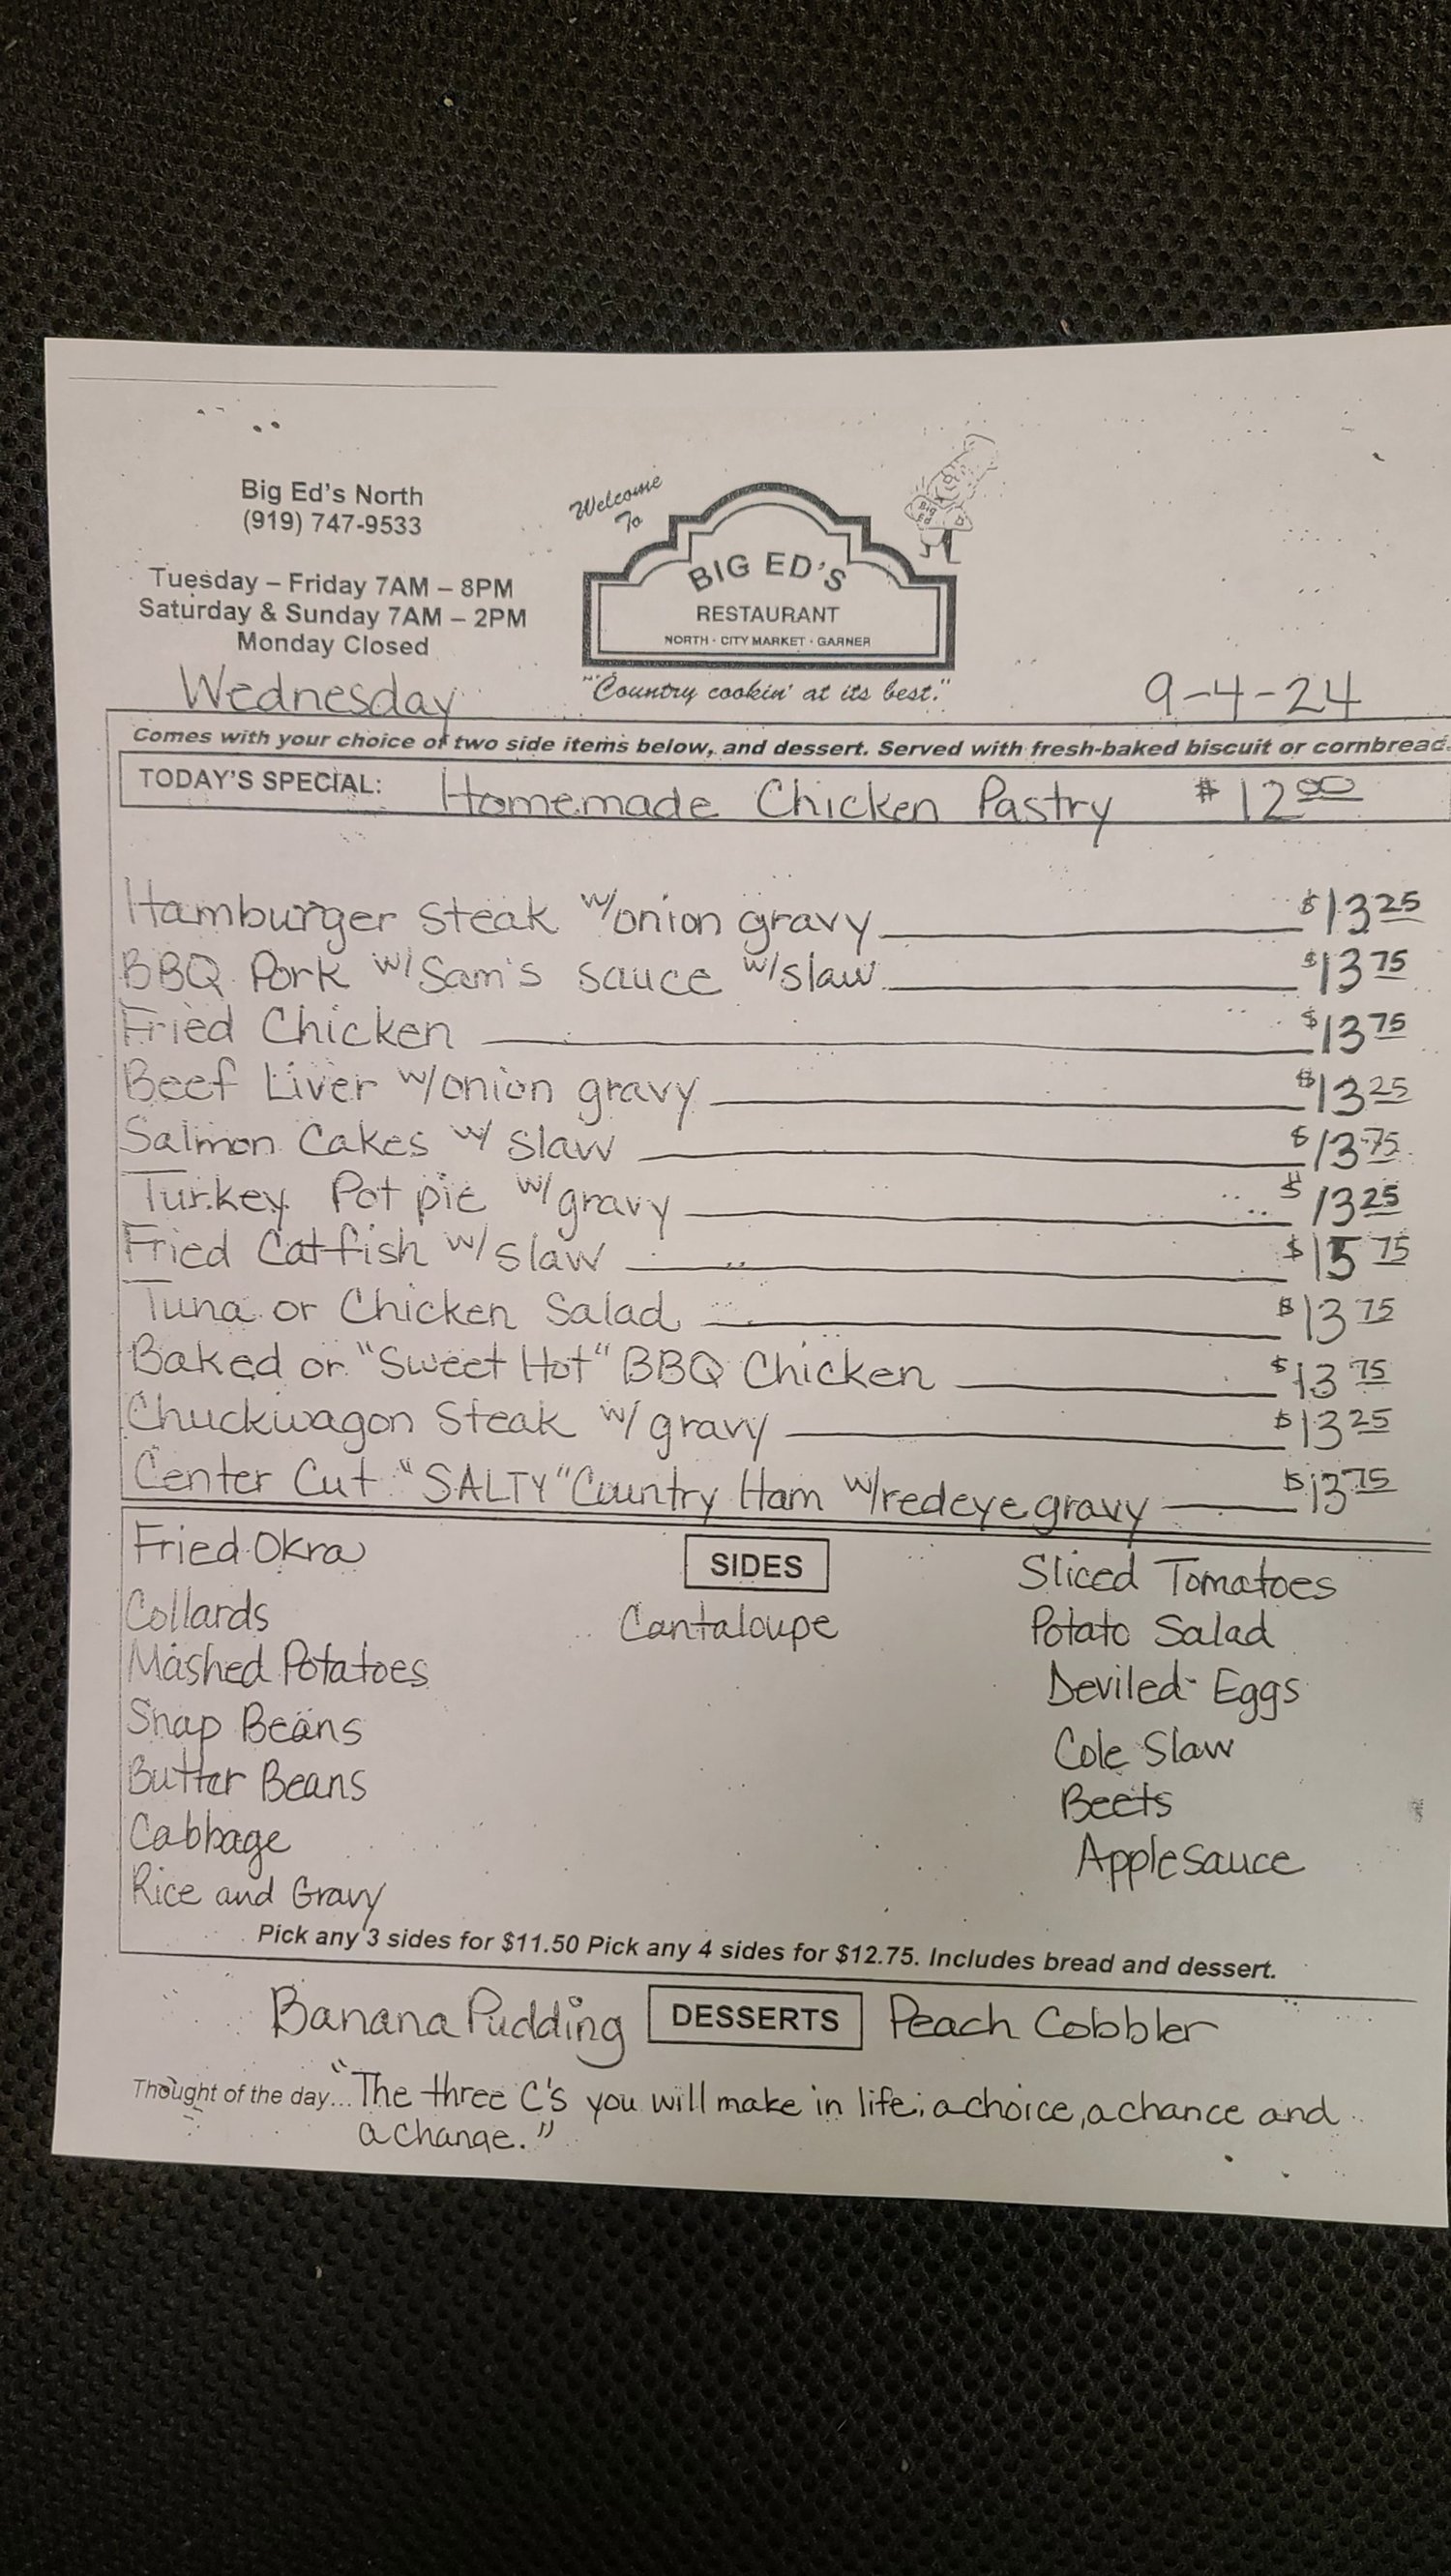 Big Ed's North
(919) 747-9533
Tuesday – Friday 7AM – 8PM
Saturday & Sunday 7AM – 2PM
Monday Closed
Welcome
To
BIG ED'S
RESTAURANT
NORTH · CITY MARKET · GARNER
"Country cookin' at its best."
Big
Ed
Wednesday
9-4-24
Comes with your choice of two side items below, and dessert. Served with fresh-baked biscuit or cornbread.
TODAY'S SPECIAL: Homemade Chicken Pastry $12 00
Hamburger Steak w/onion gravy $13 25
BBQ Pork w/ Sam's sauce w/slaw $13 75
Fried Chicken $13 75
Beef Liver w/onion gravy $13 25
Salmon Cakes w/ slaw $13 75
Turkey Pot pie w/ gravy $13 25
Fried Catfish w/ slaw $15 75
Tuna or Chicken Salad $13 75
Baked or "Sweet Hot" BBQ Chicken $13 75
Chuckwagon Steak w/ gravy $13 25
Center Cut "SALTY" Country Ham w/redeye gravy $13 75
SIDES
Fried Okra
Collards
Mashed Potatoes
Snap Beans
Butter Beans
Cabbage
Rice and Gravy
Cantaloupe
Sliced Tomatoes
Potato Salad
Deviled Eggs
Cole Slaw
Beets
Applesauce
Pick any 3 sides for $11.50 Pick any 4 sides for $12.75. Includes bread and dessert.
Banana Pudding DESSERTS Peach Cobbler
Thought of the day... "The three C's you will make in life; a choice, a chance and
a change."